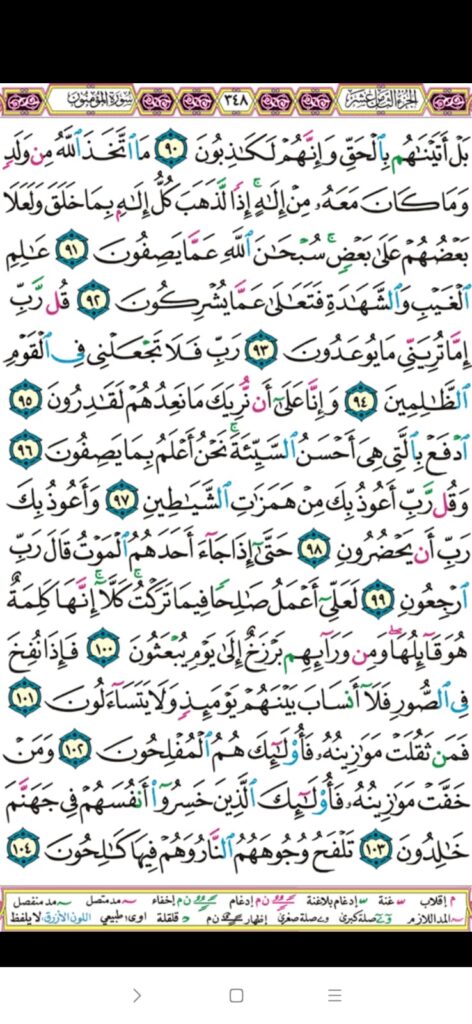 الجزء الثامن عشر ٣٤٨ سورة المؤمنون
بَلْ أَتَيْنَٰهُم بِٱلْحَقِّ وَإِنَّهُمْ لَكَٰذِبُونَ ٩٠ مَا ٱتَّخَذَ ٱللَّهُ مِن وَلَدٍ
وَمَا كَانَ مَعَهُۥ مِنْ إِلَٰهٍ ۚ إِذًا لَّذَهَبَ كُلُّ إِلَٰهٍۭ بِمَا خَلَقَ وَلَعَلَا
بَعْضُهُمْ عَلَىٰ بَعْضٍ ۚ سُبْحَٰنَ ٱللَّهِ عَمَّا يَصِفُونَ ٩١ عَٰلِمِ
ٱلْغَيْبِ وَٱلشَّهَٰدَةِ فَتَعَٰلَىٰ عَمَّا يُشْرِكُونَ ٩٢ قُل رَّبِّ
إِمَّا تُرِيَنِّي مَا يُوعَدُونَ ٩٣ رَبِّ فَلَا تَجْعَلْنِي فِي ٱلْقَوْمِ
ٱلظَّٰلِمِينَ ٩٤ وَإِنَّا عَلَىٰٓ أَن نُّرِيَكَ مَا نَعِدُهُمْ لَقَٰدِرُونَ ٩٥
ٱدْفَعْ بِٱلَّتِي هِيَ أَحْسَنُ ٱلسَّيِّئَةَ ۚ نَحْنُ أَعْلَمُ بِمَا يَصِفُونَ ٩٦
وَقُل رَّبِّ أَعُوذُ بِكَ مِنْ هَمَزَٰتِ ٱلشَّيَٰطِينِ ٩٧ وَأَعُوذُ بِكَ
رَبِّ أَن يَحْضُرُونِ ٩٨ حَتَّىٰٓ إِذَا جَآءَ أَحَدَهُمُ ٱلْمَوْتُ قَالَ رَبِّ
ٱرْجِعُونِ ٩٩ لَعَلِّيٓ أَعْمَلُ صَٰلِحًا فِيمَا تَرَكْتُ ۚ كَلَّآ ۚ إِنَّهَا كَلِمَةٌ
هُوَ قَآئِلُهَا ۖ وَمِن وَرَآئِهِم بَرْزَخٌ إِلَىٰ يَوْمِ يُبْعَثُونَ ١٠٠ فَإِذَا نُفِخَ
فِي ٱلصُّورِ فَلَآ أَنسَابَ بَيْنَهُمْ يَوْمَئِذٍ وَلَا يَتَسَآءَلُونَ ١٠١
فَمَن ثَقُلَتْ مَوَٰزِينُهُۥ فَأُو۟لَٰٓئِكَ هُمُ ٱلْمُفْلِحُونَ ١٠٢ وَمَنْ
خَفَّتْ مَوَٰزِينُهُۥ فَأُو۟لَٰٓئِكَ ٱلَّذِينَ خَسِرُوٓا۟ أَنفُسَهُمْ فِي جَهَنَّمَ
خَٰلِدُونَ ١٠٣ تَلْفَحُ وُجُوهَهُمُ ٱلنَّارُ وَهُمْ فِيهَا كَٰلِحُونَ ١٠٤
م إقلاب غنة إدغام بلاغنة ن م إدغام ن م إخفاء مد متصل مد منفصل
المد اللازم صلة كبرى صلة صغرى إظهار ن م قلقلة ا و ى طبيعي اللون الأزرق: لا يلفظ